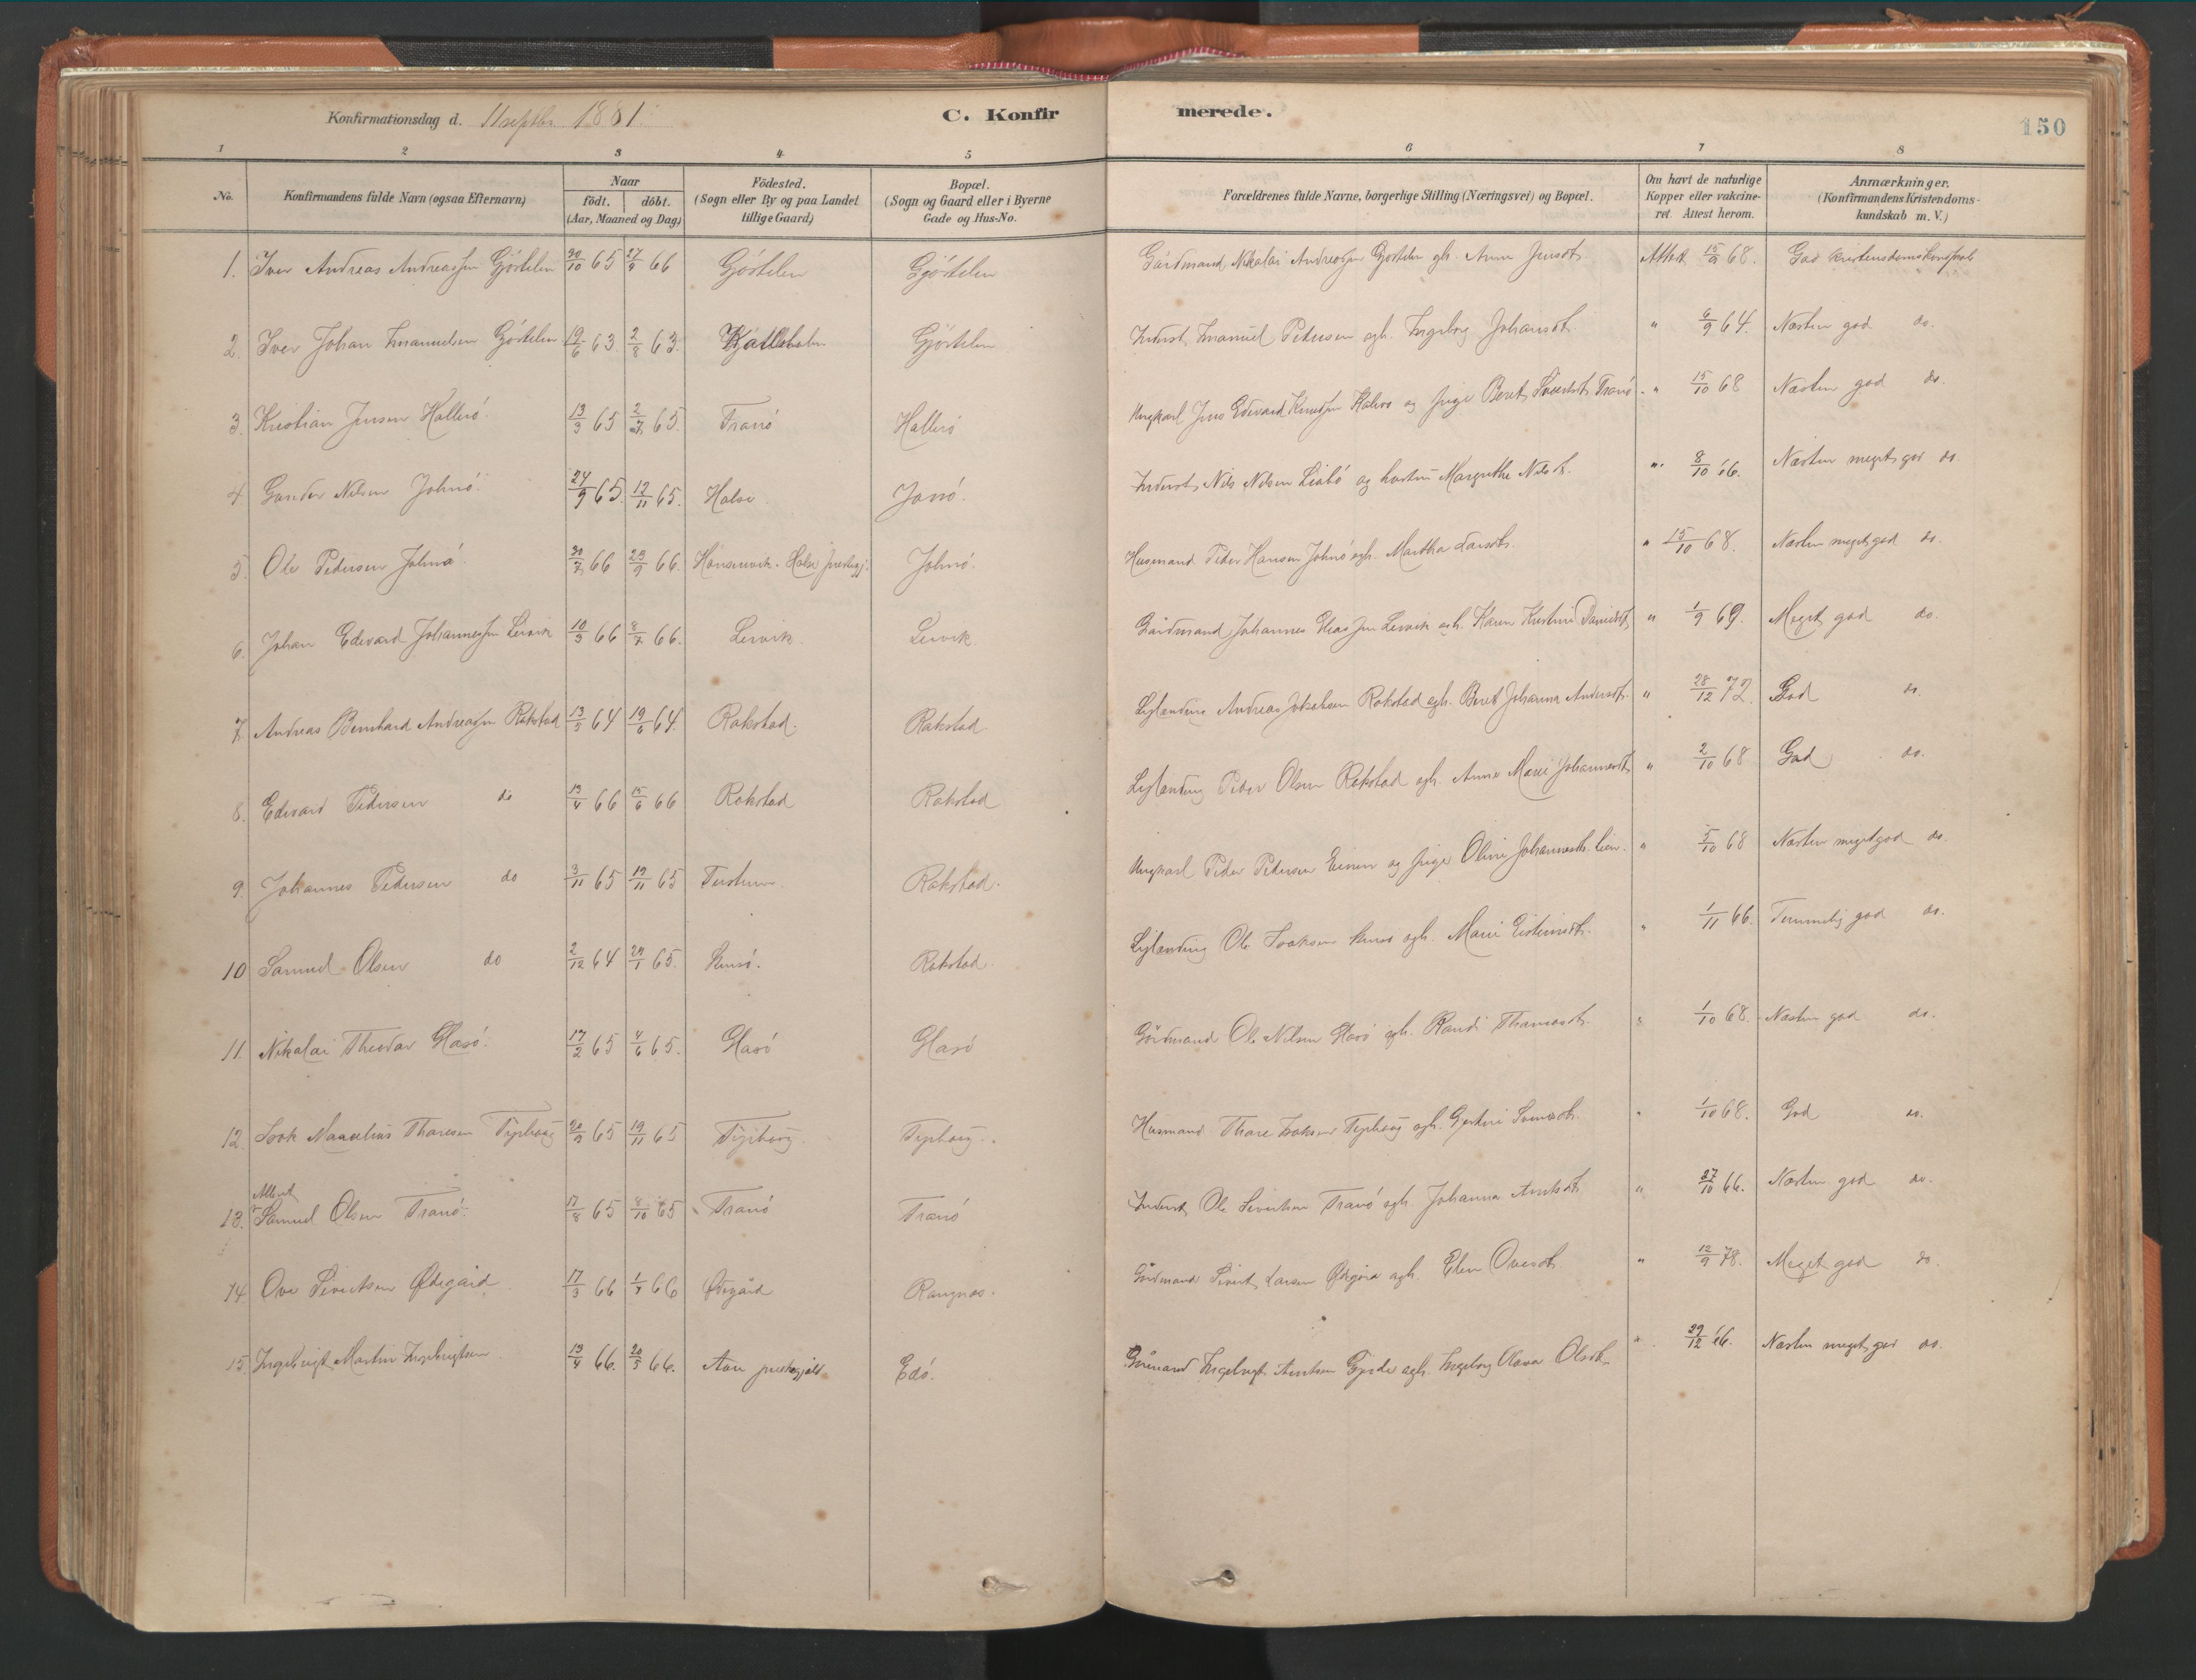 Konfirmationsdag d. 11 septbr 1881.
C. Konfirmerede.
150
1 2 3 4 5 6 7 8
No.
Konfirmandens fulde Navn (ogsaa Efternavn)
Naar
födt. döbt.
(Aar, Maaned og Dag)
Födested.
(Sogn eller By og paa Landet
tillige Gaard)
Bopæl.
(Sogn og Gaard eller i Byerne
Gade og Hus-No.
Forældrenes fulde Navne, borgerlige Stilling (Næringsvei) og Bopæl.
Om havt de naturlige
Kopper eller vakcine-
ret. Attest herom.
Anmærkninger.
(Konfirmandens Kristendoms-
kundskab m. V.)
1. Iver Andreas Andreassen Gjöstelen 30/10 65 27/9 66 Gjöstelen Gjöstelen Gårdmand Nikolai Andreassen Gjöstelen gh. Anne Jensdt. Attest 15/9 68. God kristendomskundskab
2. Iver Johan Imanuelsen Gjöstelen 19/6 63. 2/8 63. Gjöstelen Inderst Imanuel Petersen ogh. Ingeborg Johansdt. " 6/9 64. Næsten god do.
3. Kristian Jensen Hallerö. 13/3 65 2/7 65. Tranö Hallerö Ungkarl Jens Edevard Knudsen og pige Beret Tranö " 15/10 68 Næsten god do.
4. Gunder Nilsen Johnö. 24/9 65. 12/11 65. Halse Jonö. Inderst Nils Nilsen og hustru Margrethe Nilsdt. " 8/10 66. Næsten meget god do.
5. Ole Pedersen Johnö. 30/7 66 23/9 66. Halse prestegj. Johnö. Husmand Peder Hansen Johnö ogh. Martha Larsdt. " 15/10 68. Næsten meget god do.
6. Johan Edevard Johannessen Lervik 10/3 66 8/7 66. Lervik Lervik Gårdmand Johannes Eliassen Lervik ogh. Karen Kristine Danielsdt. " 1/9 69. Meget god do.
7. Andreas Bernhard Andreassen Rokstad 13/3 64 19/6 64. Rokstad. Rokstad. Leylænding Andreas Rokstad ogh. Beret Johanna Andersdt. " 28/12 72. God do.
8. Edevard Pedersen do 13/4 66 15/6 66 Rokstad Rokstad Leylænding Peder Olsen Rokstad ogh. Anne Marie Johannesdt. " 2/10 68 God do.
9. Johannes Pedersen do 3/11 65 19/11 65 Rokstad. Ungkarl Peder Pedersen og pige Oline Johannesdt. " 5/10 68 Næsten meget god do.
10 Samuel Olsen do 2/12 64 29/1 65. Rokstad. Leylænding Ole ogh. Marie " 1/11 66. Temmelig god do.
11. Nikolai Theodor Glasö. 17/2 65 4/6 65. Glasö Glasö Gårdmand Ole Nilsen Glasö ogh. Randi Thomasdt. " 1/10 68. Næsten god do.
12. Isak Thoresen Typhoug 20/9 65 19/11 65 Typhoug. Husmand Thore Isaksen Typhoug ogh. " 1/10 68. God do.
13. Albert Samuel Olsen Tranö. 17/8 65 8/10 65 Tranö Tranö Inderst Ole Sivertsen Tranö ogh. Johanna Arntsdt. " 27/10 66. Næsten god do.
14. Ove Sivertsen Ødegård 17/3 66 1/7 66 Ødegård Rangnæs. Gårdmand Sivert Larsen Ødegård ogh. Elen Ovesdt. " 12/9 78. Meget god do.
15. Ingebrigt Martin Ingebrigtsen 13/4 66. 20/5 66. Aure prestegjeld Edö. Ingebrigt Arntsen ogh. Ingeborg Olava Olsdt. " 29/12 66. Næsten meget god do.